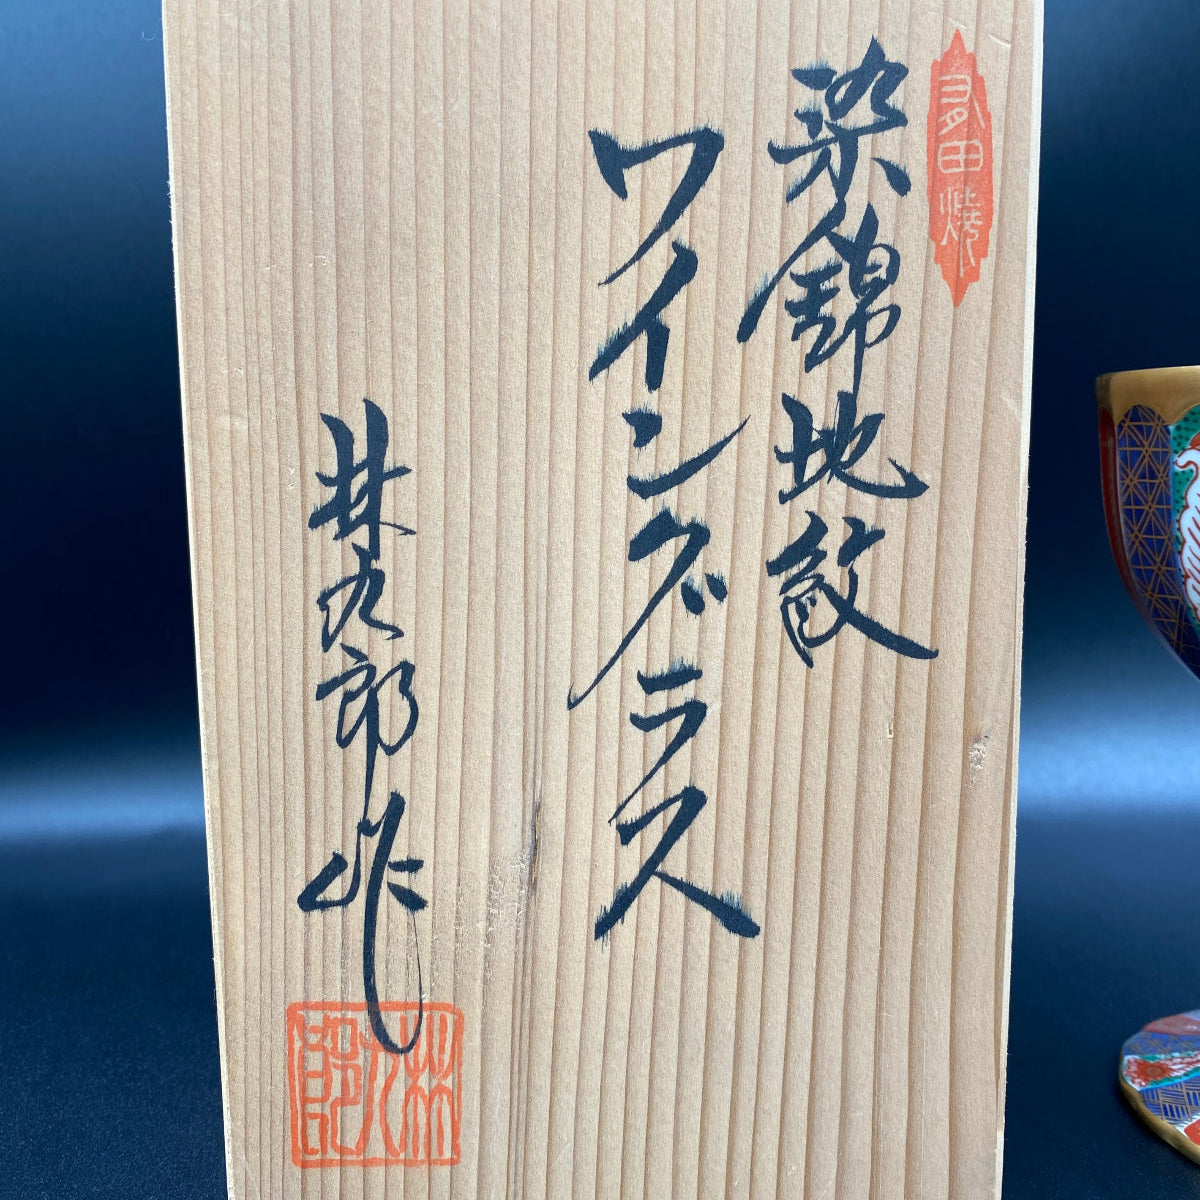 有田焼
染錦地紋
ワイングラス
林九郎作
林九郎